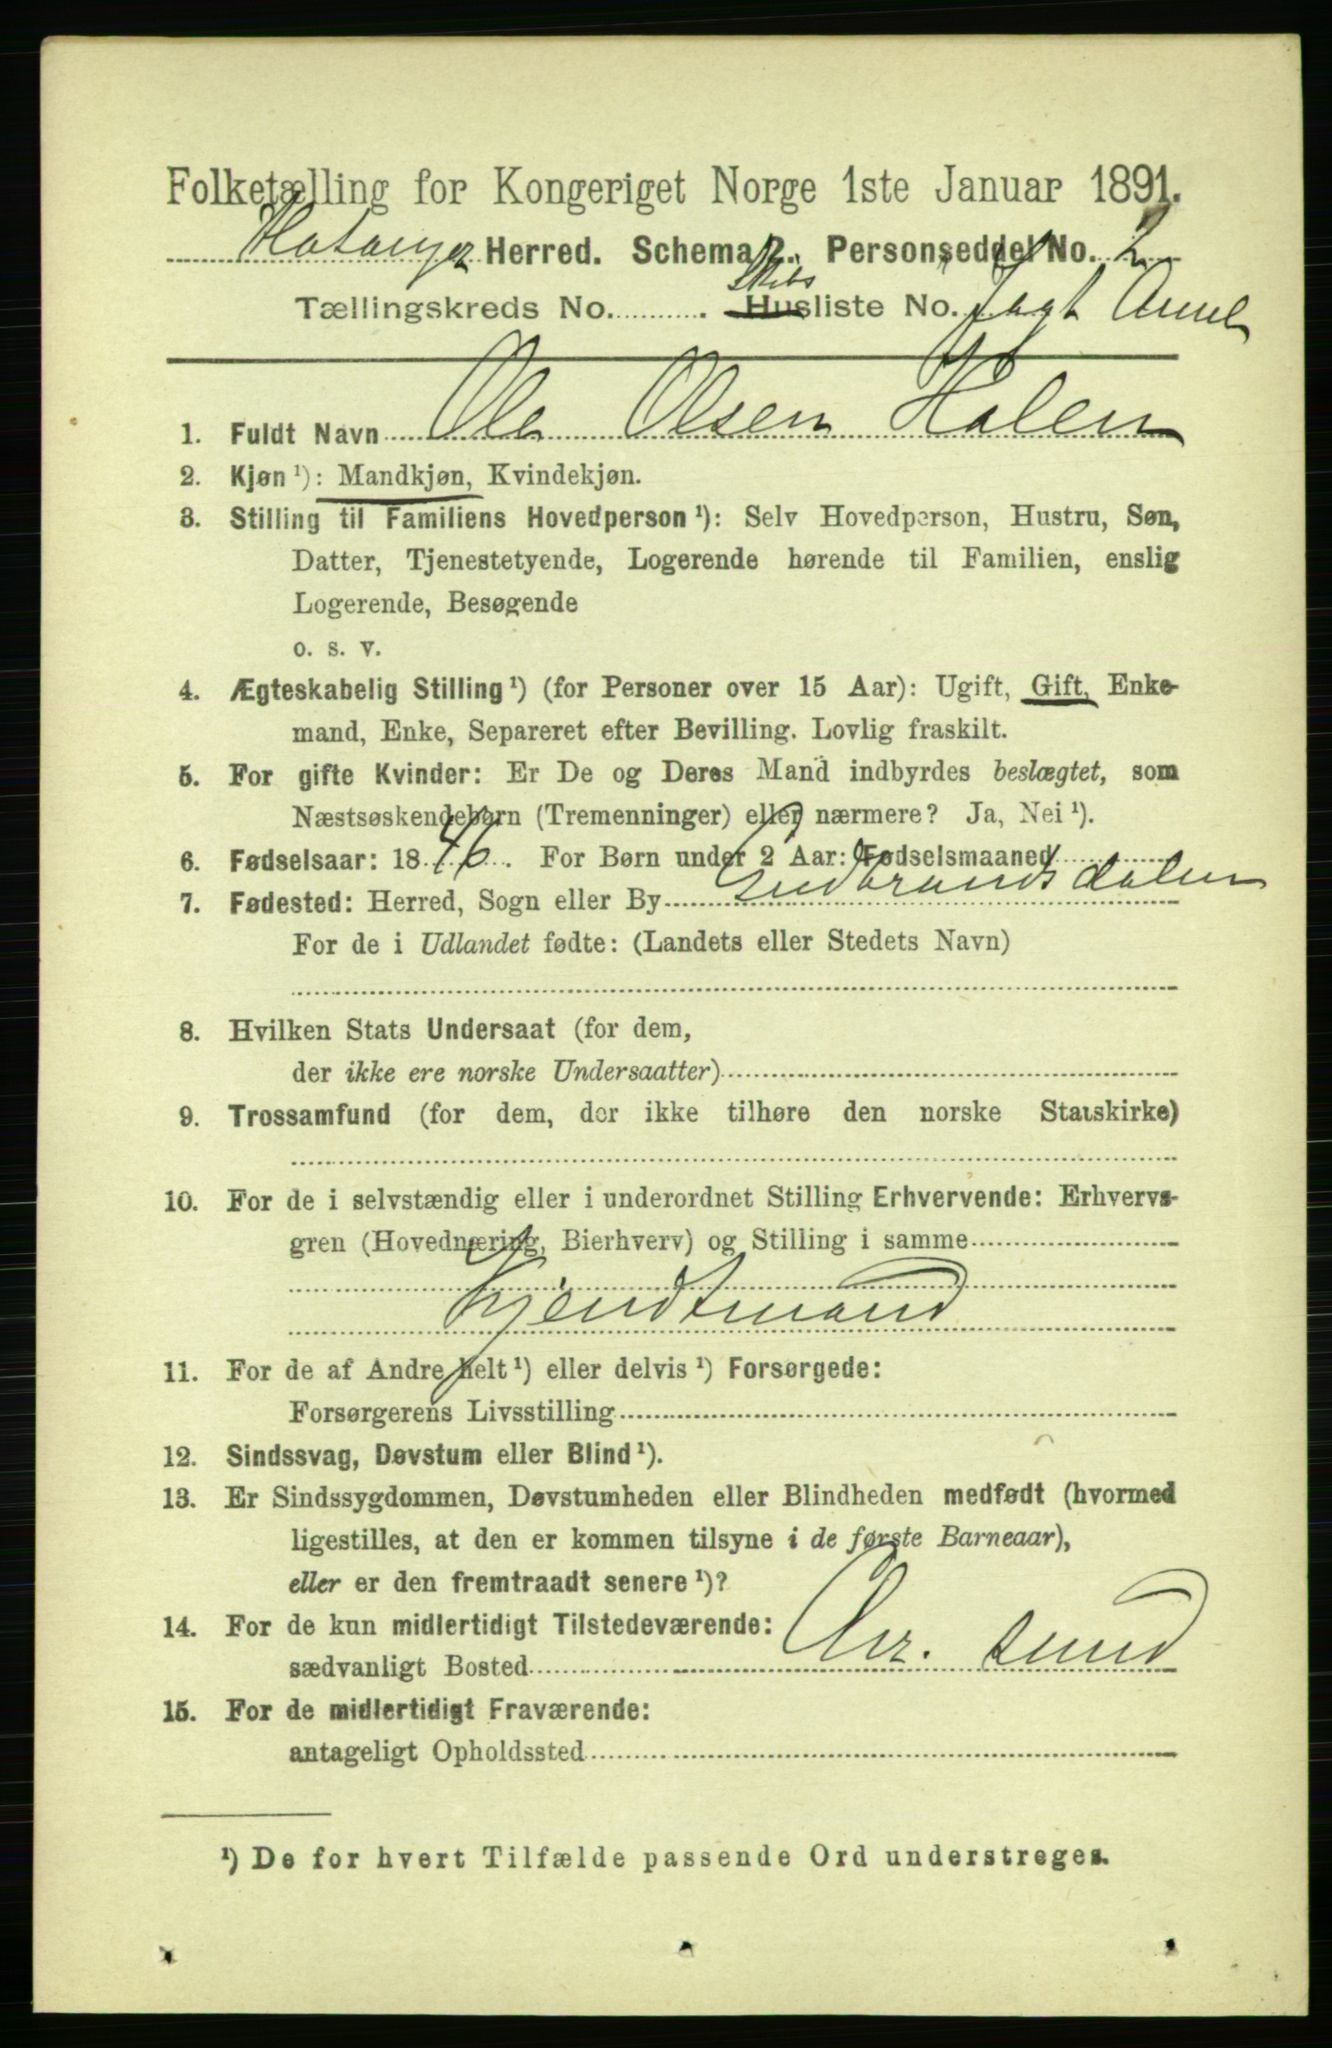 Folketælling for Kongeriget Norge 1ste Januar 1891.
Herred. Schema 2. Personseddel No. 2
Tællingskreds No. Skibs Husliste No. Jagt
1. Fuldt Navn Ole Olsen Holen
2. Kjøn ¹): Mandkjøn, Kvindekjøn.
3. Stilling til Familiens Hovedperson ¹): Selv Hovedperson, Hustru, Søn,
Datter, Tjenestetyende, Logerende hørende til Familien, enslig
Logerende, Besøgende
o. s. v.
4. Ægteskabelig Stilling ¹) (for Personer over 15 Aar): Ugift, Gift, Enke-
mand, Enke, Separeret efter Bevilling. Lovlig fraskilt.
5. For gifte Kvinder: Er De og Deres Mand indbyrdes beslægtet, som
Næstsøskendebørn (Tremenninger) eller nærmere? Ja, Nei ¹).
6. Fødselsaar: 1846. For Børn under 2 Aar: Fødselsmaaned
7. Fødested: Herred, Sogn eller By Gudbrandsdalen
For de i Udlandet fødte: (Landets eller Stedets Navn)
8. Hvilken Stats Undersaat (for dem,
der ikke ere norske Undersaatter)
9. Trossamfund (for dem, der ikke tilhøre den norske Statskirke)
10. For de i selvstændig eller i underordnet Stilling Erhvervende: Erhvervs-
gren (Hovednæring, Bierhverv) og Stilling i samme
Kjendtmand
11. For de af Andre helt ¹) eller delvis ¹) Forsørgede:
Forsørgerens Livsstilling
12. Sindssvag, Døvstum eller Blind ¹).
13. Er Sindssygdommen, Døvstumheden eller Blindheden medfødt (hvormed
ligestilles, at den er kommen tilsyne i de første Barneaar),
eller er den fremtraadt senere ¹)?
14. For de kun midlertidigt Tilstedeværende:
sædvanligt Bosted Chr. sund
15. For de midlertidigt Fraværende:
antageligt Opholdssted
¹) De for hvert Tilfælde passende Ord understreges.